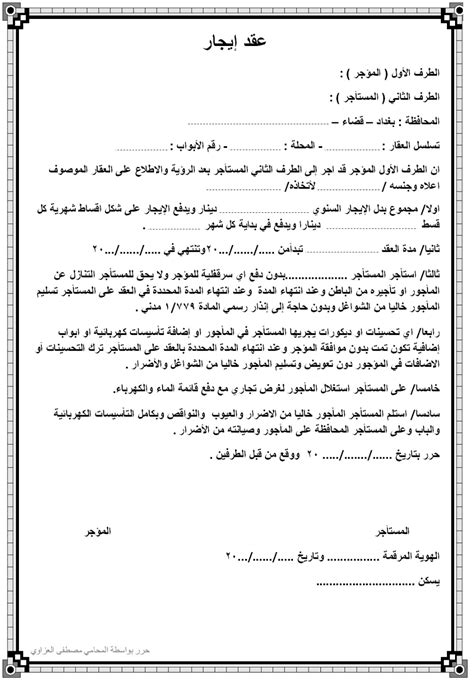 عقد إيجار
الطرف الأول ( المؤجر ) :
الطرف الثاني ( المستأجر ) :
المحافظة : بغداد – قضاء – ......................................
تسلسل العقار : .................. - المحلة : ................ - رقم الأبواب : ................
ان الطرف الأول المؤجر قد اجر إلى الطرف الثاني المستأجر بعد الرؤية والاطلاع على العقار الموصوف
اعلاه وجنسه / .................... لأتخاذه/ .........................
اولا/ مجموع بدل الإيجار السنوي ........................ دينار ويدفع الإيجار على شكل اقساط شهرية كل
قسط ...................... دينارا ويدفع في بداية كل شهر ................ .
ثانيا/ مدة العقد ..................... تبدأمن ...../....../...٢٠وتنتهي في ...../....../...٢٠
ثالثا/ استأجر المستأجر ...................بدون دفع اي سرقفلية للمؤجر ولا يحق للمستأجر التنازل عن
المأجور او تأجيره من الباطن وعند انتهاء المدة وعند انتهاء المدة المحددة في العقد على المستأجر تسليم
المأجور خاليا من الشواغل وبدون حاجة إلى إنذار رسمي المادة ١/٧٧٩ مدني .
رابعا/ اي تحسينات او ديكورات يجريها المستأجر في المأجور او إضافة تأسيسات كهربائية او ابواب
إضافية تكون تمت بدون موافقة المؤجر وعند انتهاء المدة المحددة بالعقد على المستأجر ترك التحسينات او
الاضافات في الموجور دون تعويض وتسليم المأجور خاليا من الشواغل والأضرار .
خامسا/ على المستأجر استغلال المأجور لغرض تجاري مع دفع قائمة الماء والكهرباء.
سادسا/ استلم المستأجر المأجور خاليا من الاضرار والعيوب والنواقص وبكامل التأسيسات الكهربائية
والباب وعلى المستأجر المحافظة على المأجور وصيانته من الأضرار .
حرر بتاريخ ....../......./..... ٢٠ ووقع من قبل الطرفين .
المستأجر المؤجر
الهوية المرقمة ................ وتاريخ ...../....../...٢٠
يسكن .............................
حرر بواسطة المحامي مصطفى العزاوي